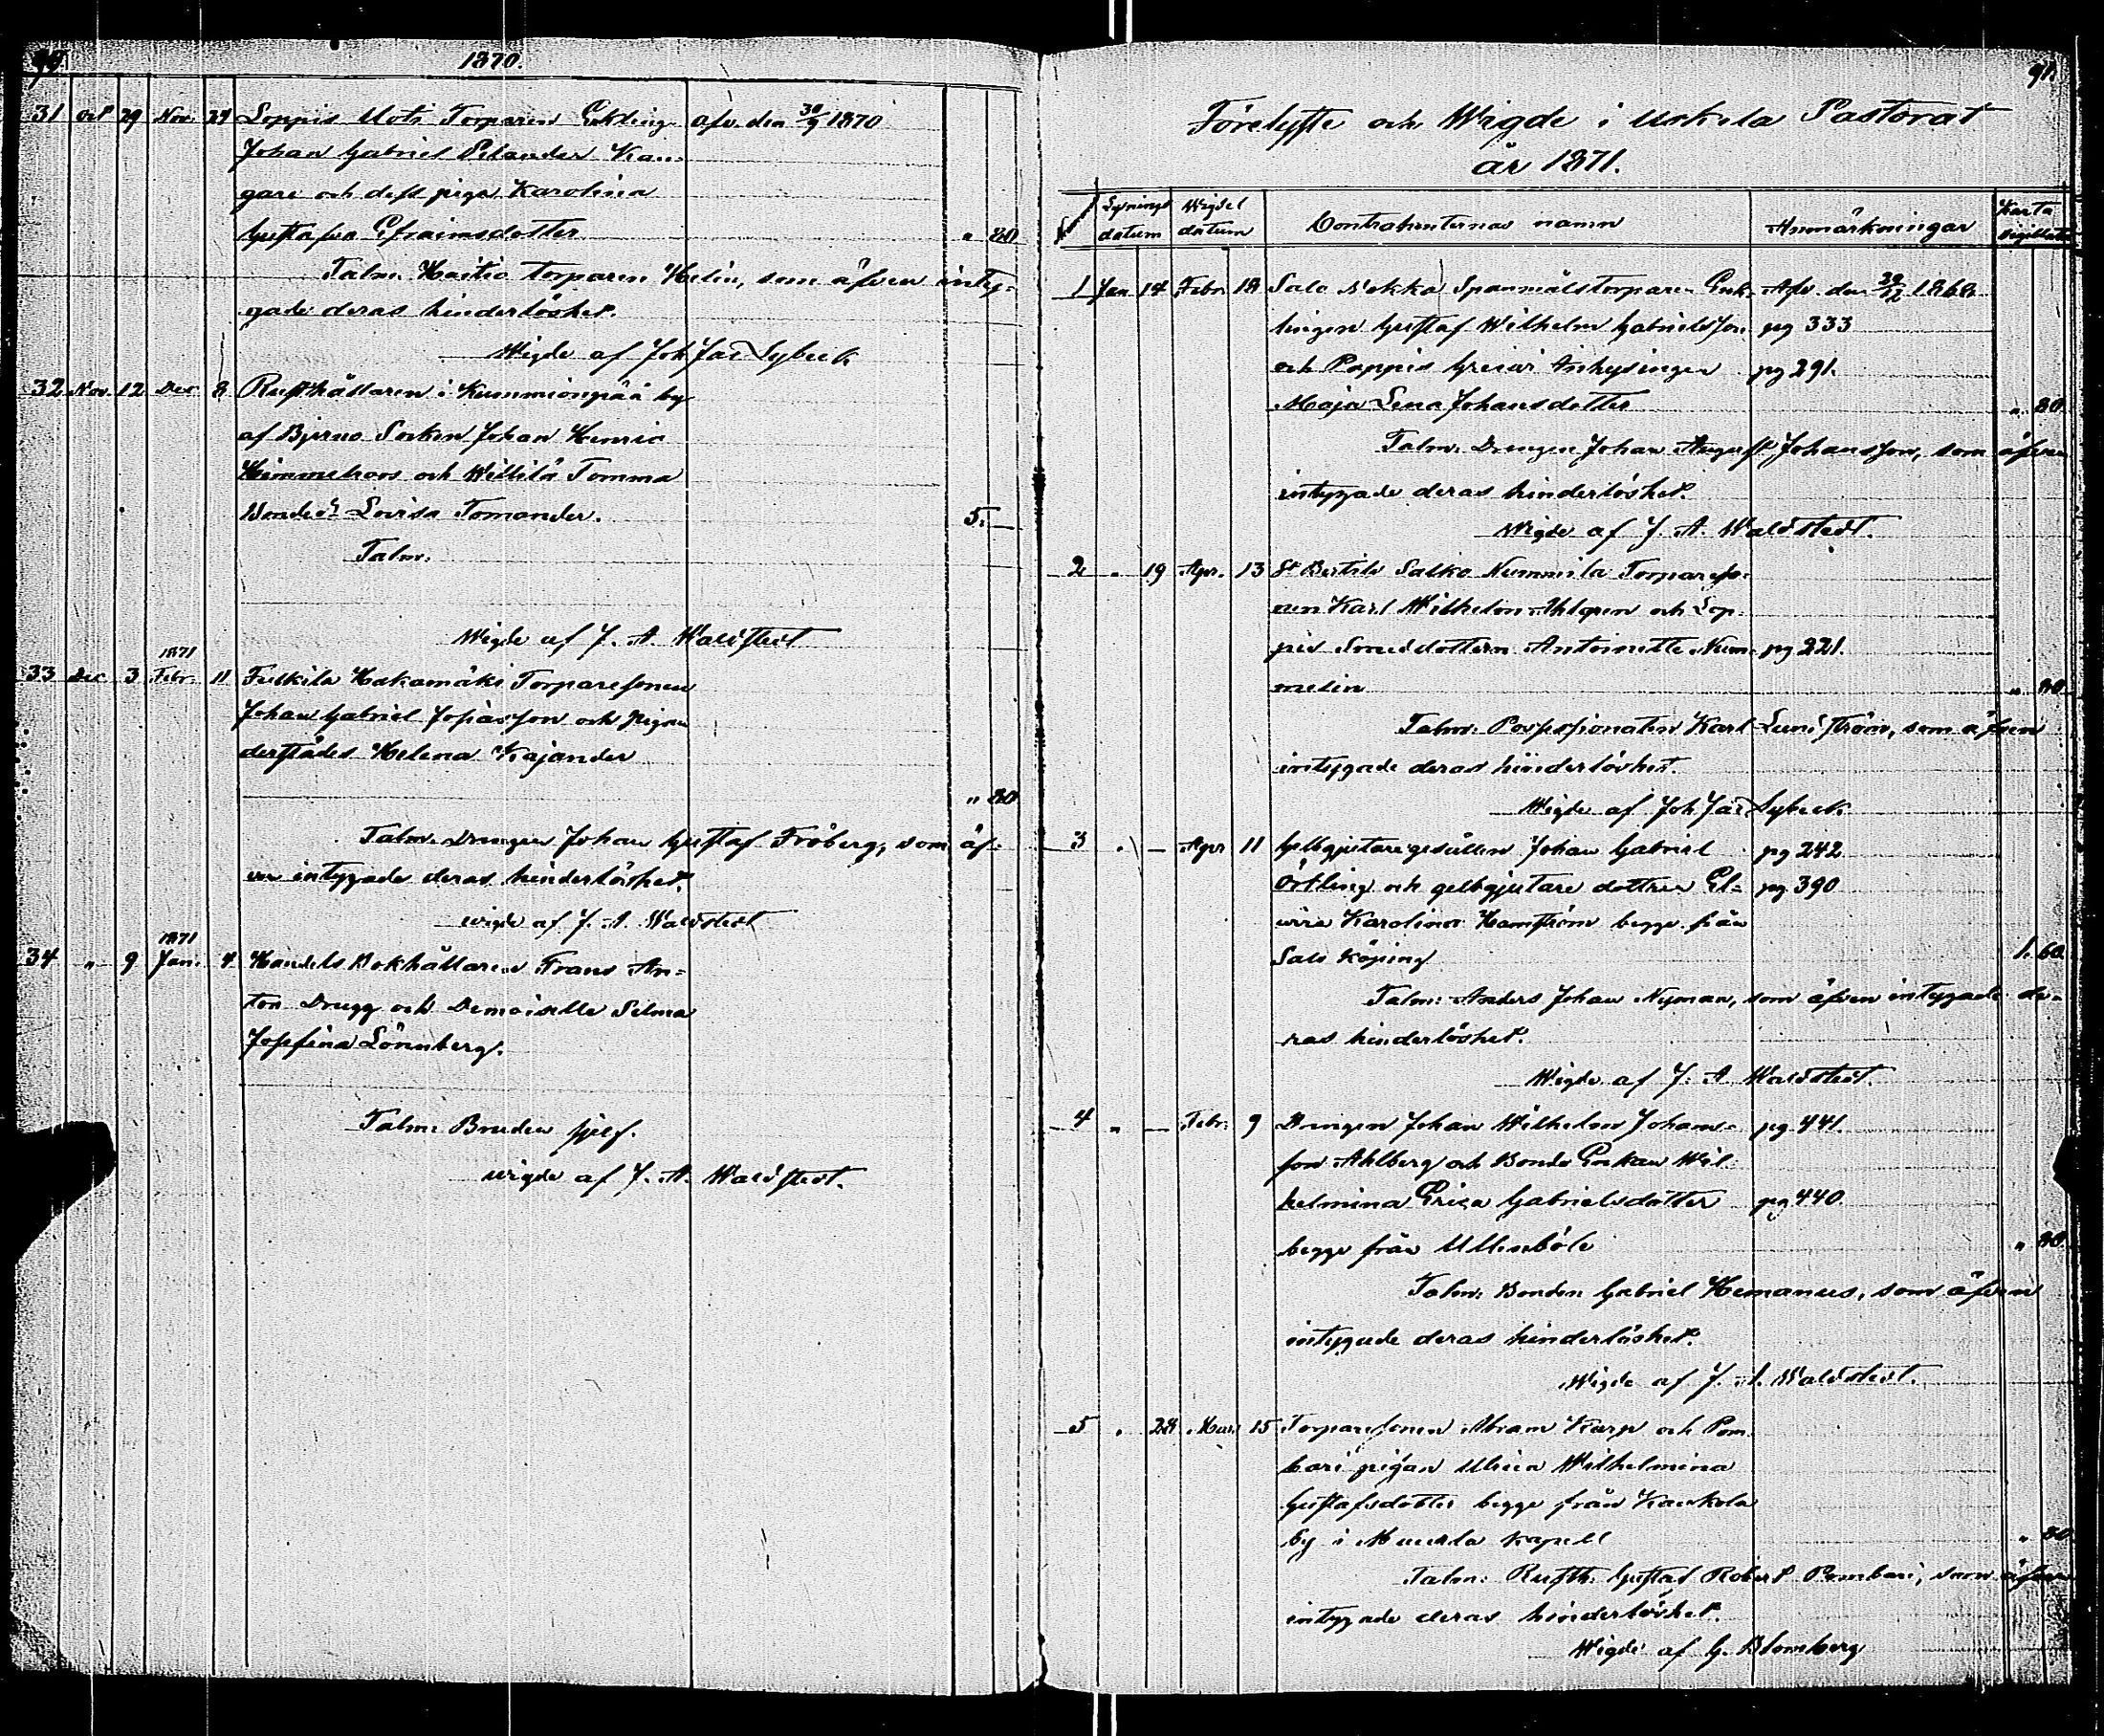 90.
1870.
31 Oct 29 Nov. 29 Loppis Uoti Torparen Enkling afv. den 30/9 1870
Johan Gabriel Pilander Kan-
gare och dess piga Karolina
Gustafva Efraimsdotter " 80
Talm: Haitio torparen Helin, som äfven inty-
gade deras hinderlöshet.
Wigde af Joh Jac Sybeck
32 Nov. 12 Dec 8 Rusthållaren i Kummionpää by
af Bjerno Socken Johan Henric
Himmelroos och Willilä Tomma
Bonded:r Lovisa Tomander. 5. —
Talm:
Wigde af J. A. Waldstedt
1871
33 Dec 3 Febr. 11 Fulkila Hakamäki Torparesonen
Johan Gabriel Josiasson och pigan
derstädes Helena Kajander
" 80
Talm. Drengen Johan Gustaf Fröberg, som äf-
ven intygade deras hinderlöshet.
wigde af J. A. Waldstedt
1871
34 " 9 Jan. 4 Handels Bokhållaren Frans An-
ton Drugg och Demoiselle Selma
Josefina Lönnberg.
Talm: Bruden sjelf.
wigde af J. A. Waldstedt.
91.
Förelyste och Wigde i Uskela Pastorat
år 1871.
Lysnings datum Wigsel datum Contrahenternas namn Anmärkningar Karta sigillata
1 Jan 14 Febr. 18 Salo Nokka Spanmålstorparen Enk- Afv. den 1868
lingen Gustaf Wilhelm Gabrielsson pg 333
och Pappis Inhysingen pg 291.
Maja Lena Johansdotter " 80
Talm. Drengen Johan August Johansson, som äfven
intygade deras hinderlöshet.
Wigde af J. A. Waldstedt.
2 " 19 Apr. 13 St Bertils Salko Nummila Torpareso-
nen Karl Wilhelm Ahlgren och Lop-
pis Smeddottern Antoinette Num- pg 221.
melin " 80
Talm: Possessionaten Karl Lundström, som äfven
intygade deras hinderlöshet.
Wigde af Joh Jac Sybeck.
3 " — Apr 11 Gelbgjutaregesällen Johan Gabriel pg 242
Örtling och gelbgjutare dottren El- pg 390
vira Karolina Hamström begge från
Salo Köping 1. 60
Talm: Anders Johan Nyman, som äfven intygade de-
ras hinderlöshet.
Wigde af J. A. Waldstedt.
4 " — Febr. 9 Drengen Johan Wilhelm Johans- pg 441.
son Ahlberg och Bonde Enkan Wil-
helmina Erica Gabrielsdotter pg 440.
begge från Ullenböle " 80.
Talm: Bonden Gabriel Hemanus, som äfven
intygade deras hinderlöshet.
Wigde af J. A. Waldstedt.
5 " 28 Mars 15 Torparesonen Abram Karp och Pom-
bari pigan Ulrica Wilhelmina
Gustafsdotter begge från Kaukola
by i Muurla kapell " 80
Talm: Rusth: Gustaf Robert Pombari, som äfven
intygade deras hinderlöshet.
Wigde af G. Blomberg